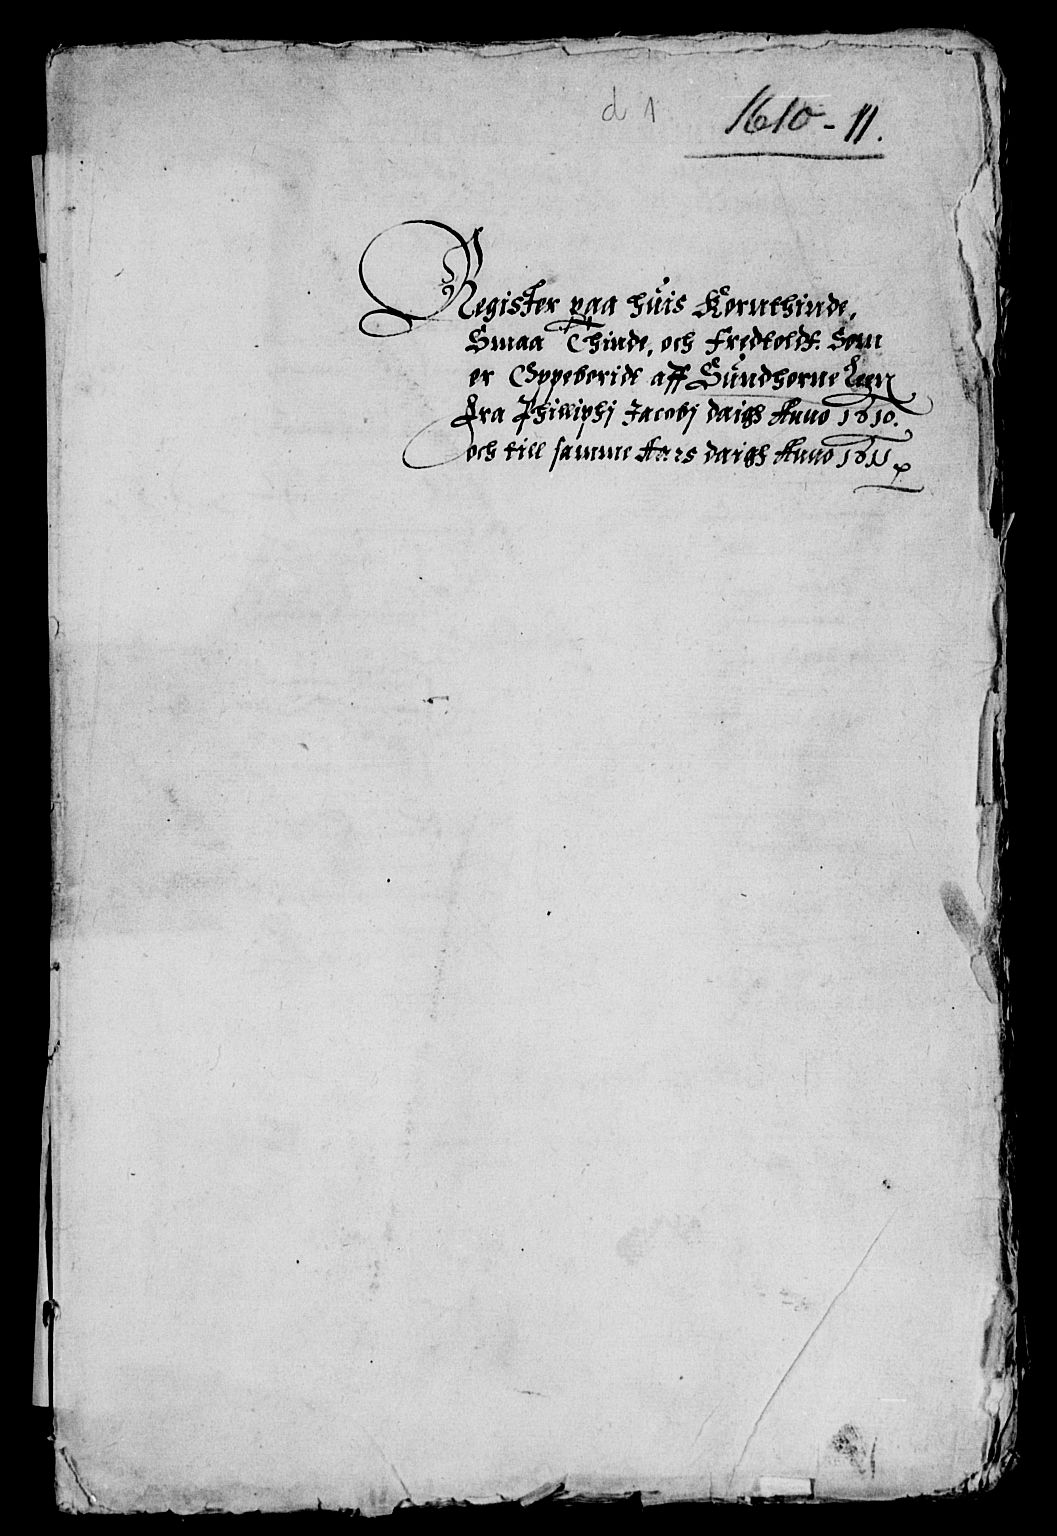 d 1
1610 - 11.
Register paa huis Kornthinde,
Smaa Thinde, och Fredtoldt. Som
er Oppeboridt aff Sundhorne Leen
fra Philliphj Jacobj daigh Anno 1610.
och till samme Aars daigh Anno 1611